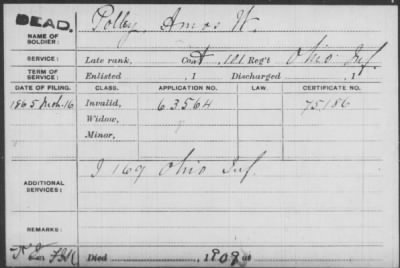 DEAD.
NAME OF SOLDIER: Polley Amos W.
SERVICE: Late rank, Co. A, 101 Reg't Ohio Inf.
TERM OF SERVICE: Enlisted , 1 Discharged , 1
DATE OF FILING. CLASS. APPLICATION NO. LAW. CERTIFICATE NO.
1865 Mch. 16 Invalid, 63564 75186
Widow,
Minor,
ADDITIONAL SERVICES: I 169 Ohio Inf.
REMARKS:
Died , 1909, at